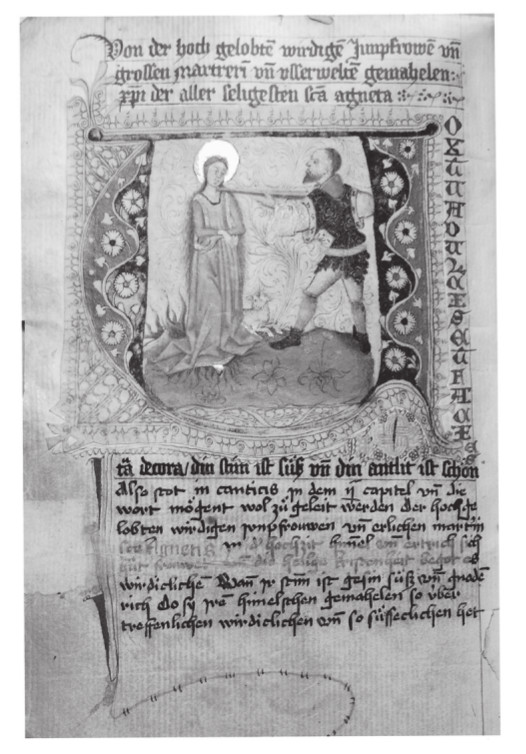 Von der hoch gelobtē wirdigē Junpfrowē vn̄
grossen martreri vn̄ vsserweltē gemahelen
xp̄i der aller seligesten scā agneta
OX
DUL
tā decora / din stim ist süß vn̄ din antlit ist schön
Also stot in canticis in dem ij capitel vn̄ die
wort mögent wol zů geleit werden der hochge
lobten wirdigen jvnpfrouwen vn̄ erlichen martrin
Agnetis in d' hochzit himel vn̄ ertrich sich
vn̄ die heilige kristenheit begot es
wirdicliche Wan̄ ir stim̄ ist gesin süß vn̄ gnadē
rich do sy irē himelschen gemahelen so über
treffenlichen wirdiclichen vn̄ so süsseclichen het